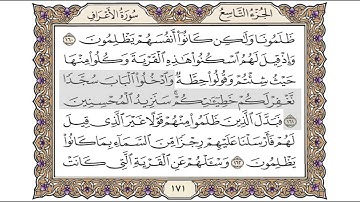 سُورَةُ الأَعْرَافِ الجُزْءُ التَّاسِعُ
ظَلَمُونَا وَلَٰكِن كَانُوٓا۟ أَنفُسَهُمْ يَظْلِمُونَ ١٦٠
وَإِذْ قِيلَ لَهُمُ ٱسْكُنُوا۟ هَٰذِهِ ٱلْقَرْيَةَ وَكُلُوا۟ مِنْهَا
حَيْثُ شِئْتُمْ وَقُولُوا۟ حِطَّةٌ وَٱدْخُلُوا۟ ٱلْبَابَ سُجَّدًا
نَّغْفِرْ لَكُمْ خَطِيٓـَٰٔتِكُمْ سَنَزِيدُ ٱلْمُحْسِنِينَ
١٦١ فَبَدَّلَ ٱلَّذِينَ ظَلَمُوا۟ مِنْهُمْ قَوْلًا غَيْرَ ٱلَّذِى قِيلَ
لَهُمْ فَأَرْسَلْنَا عَلَيْهِمْ رِجْزًا مِّنَ ٱلسَّمَآءِ بِمَا كَانُوا۟
يَظْلِمُونَ ١٦٢ وَسْـَٔلْهُمْ عَنِ ٱلْقَرْيَةِ ٱلَّتِى كَانَتْ
١٧١